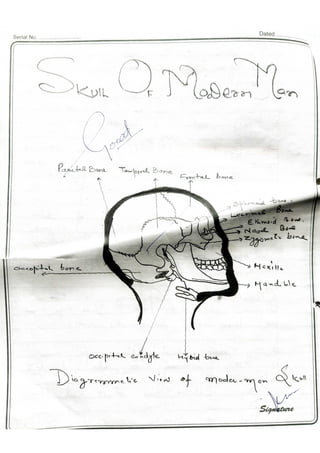 Serial No. Dated
Skull Of Modern Man
Good
Parital Bone Temporal Bone Frontal bone
Sphenoid bone
Lacrimal Bone
Ethmoid Bone
Nasal Bone
Zygomatic bone
occopital bone
Maxilla
Mandible
occipital condyle Hyoid bone
Diagrammatic View of moder-man Skull
Signature